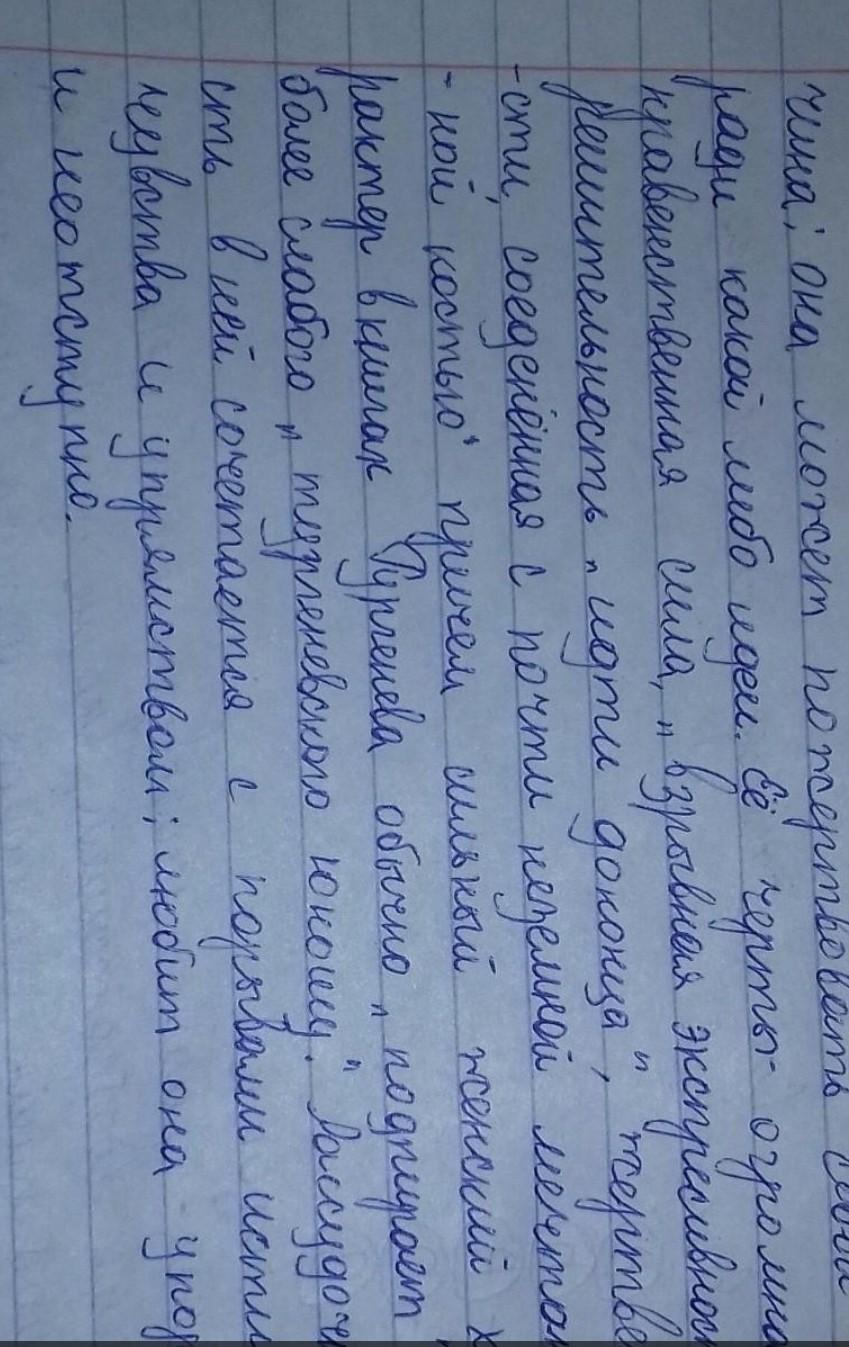 чина; она может пожертвовать собой
ради какой либо идеи. Её черты- огромна
нравственная сила, „взрывная экспрессивност
решительность „идти доконца", жертве
-сти, соеденённая с почти неземной мечтат
-ностью" причем сильный женский х
рактер в книгах Тургенева обычно „подпирает"
более слабого „тургеневского юношу". Рассудочн
сть в ней сочетается с порывами исти
чувства и упрямством; любит она упор
и неотступно.